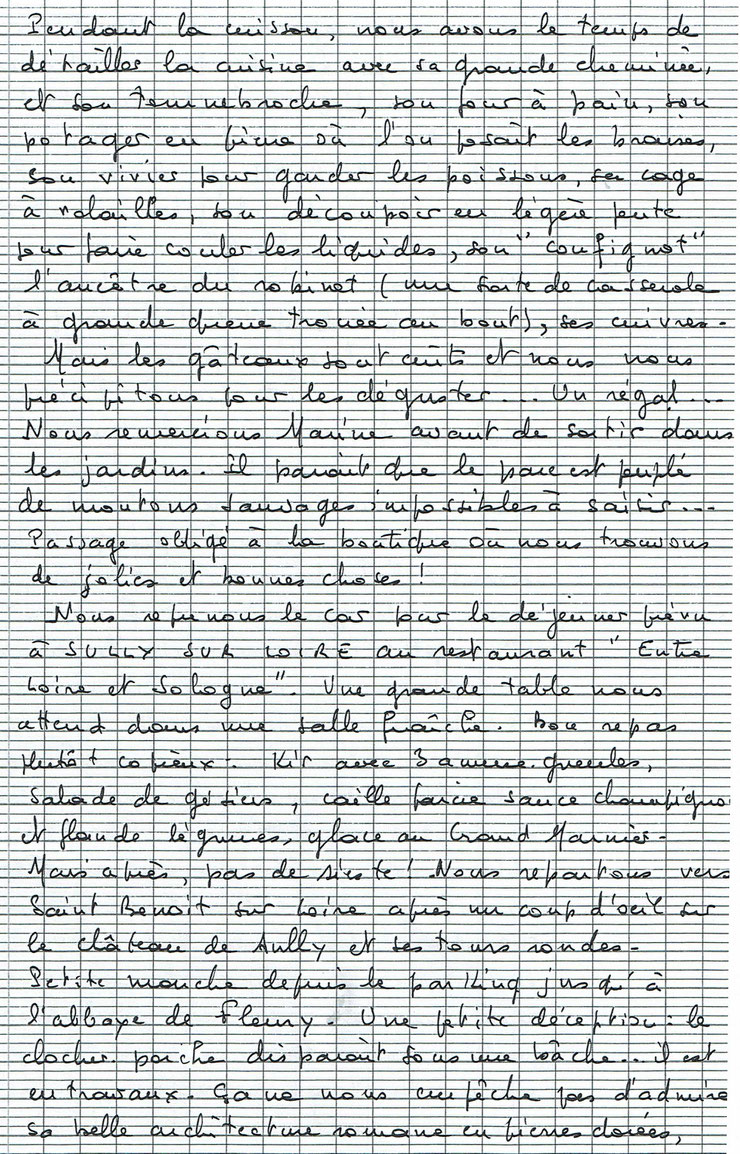 Pendant la cuisson, nous avons le temps de
détailler la cuisine avec sa grande cheminée,
et son tournebroche, son four à pain, son
potager en pierre où l'on posait les braises,
son vivier pour garder les poissons, sa cage
à volailles, son découpoir en légère pente
pour faire couler les liquides, son "confignot"
l'ancêtre du robinet (une sorte de casserole
à grande queue trouée au bout), ses cuivres.
Mais les gâteaux sont cuits et nous nous
précipitons pour les déguster... Un régal...
Nous remercions Marine avant de sortir dans
les jardins. Il paraît que le parc est peuplé
de moutons sauvages impossibles à saisir...
Passage obligé à la boutique où nous trouvons
de jolies et bonnes choses !
Nous reprenons le car pour le déjeuner prévu
à SULLY SUR LOIRE au restaurant "Entre
Loire et Sologne". Une grande table nous
attend dans une salle fraîche. Bon repas
plutôt copieux : Kir avec 3 amuse-gueules,
Salade de gésiers, caille farcie sauce champigno
et flan de légumes, glace au Grand Marnier.
Mais après, pas de sieste ! Nous repartons vers
Saint Benoît sur Loire après un coup d'oeil sur
le château de Sully et ses tours rondes.
Petite marche depuis le parking jusqu'à
l'abbaye de Fleury. Une petite déception : le
clocher-porche disparaît sous une bâche... il est
en travaux. Ça ne nous empêche pas d'admirer
sa belle architecture romane en pierres dorées,